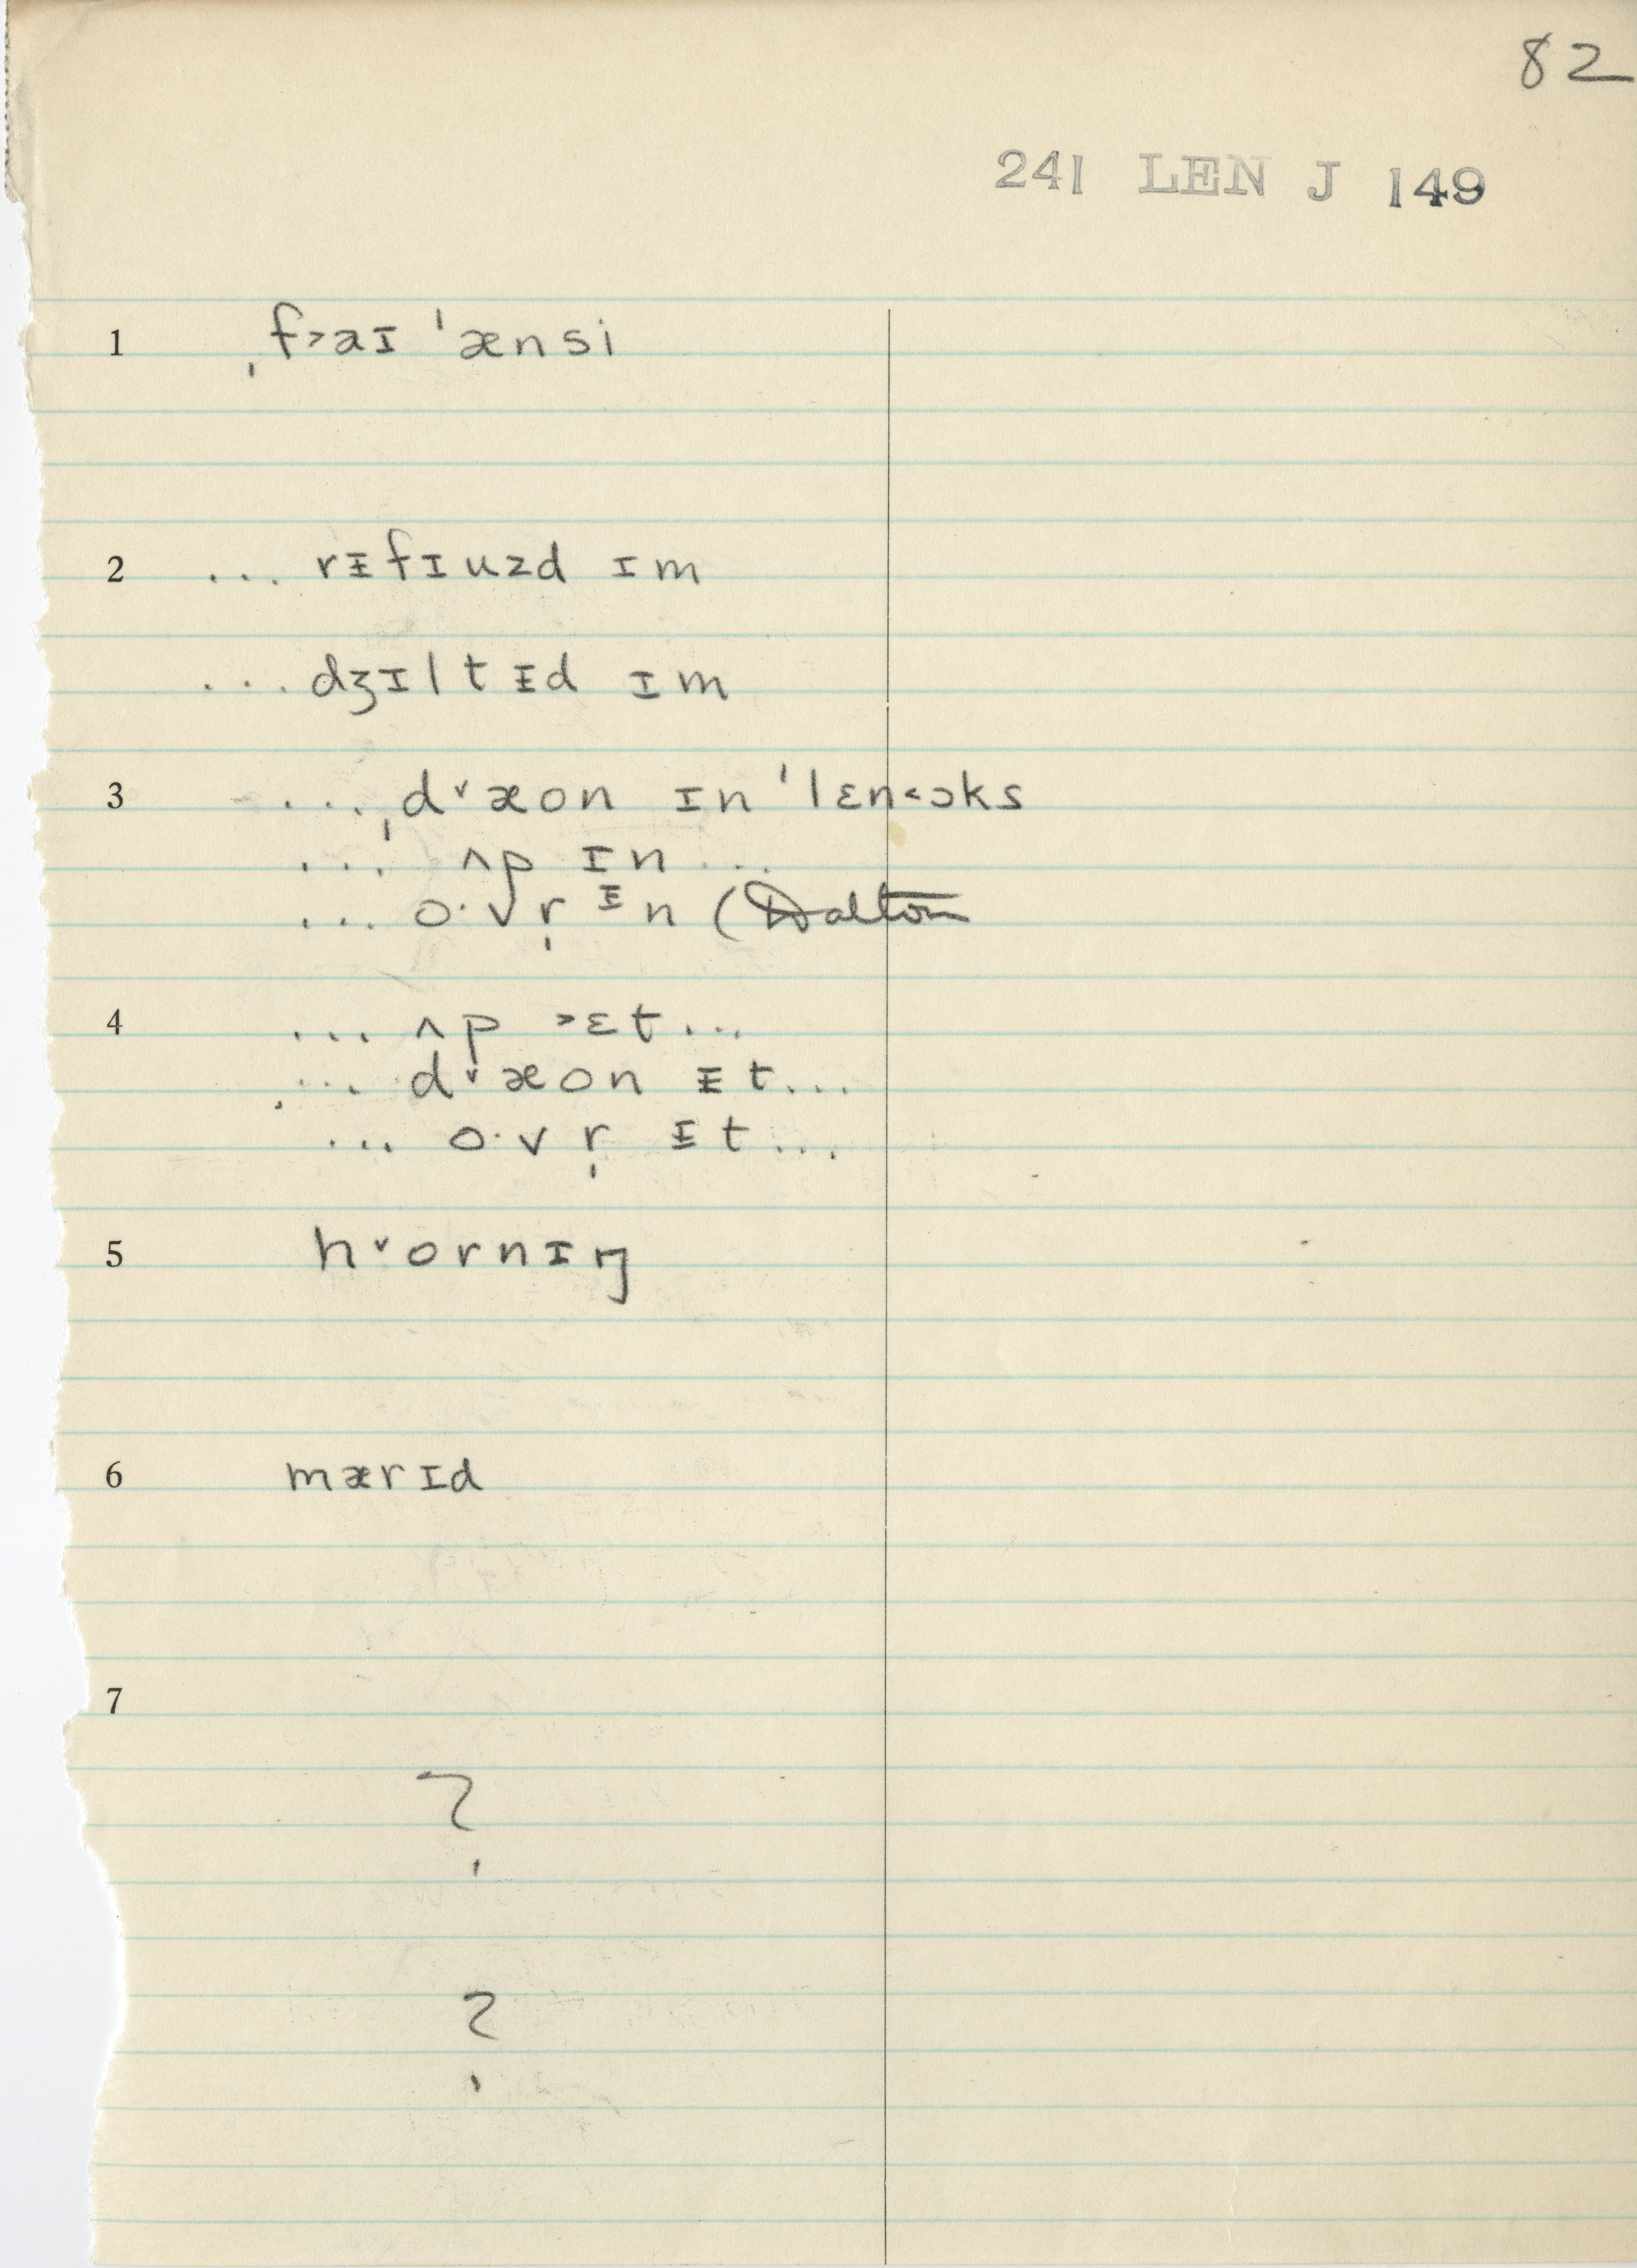 82
241 LEN J 149
1 ˌf˃aɪ ˈænsi
2 ... rᵻfɪuzd ɪm
... dʒɪltᵻd ɪm
3 ... ˌd˅æon ɪn ˈlɛn˂ɔks
... ʌp ɪn ...
... o·vr̩ ᵻn (Dalton
4 ... ʌp ˃ɛt ...
... d˅æon ᵻt ...
... o·vr̩ ᵻt ...
5 h˅ornɪŋ
6 mærɪd
7
?
?